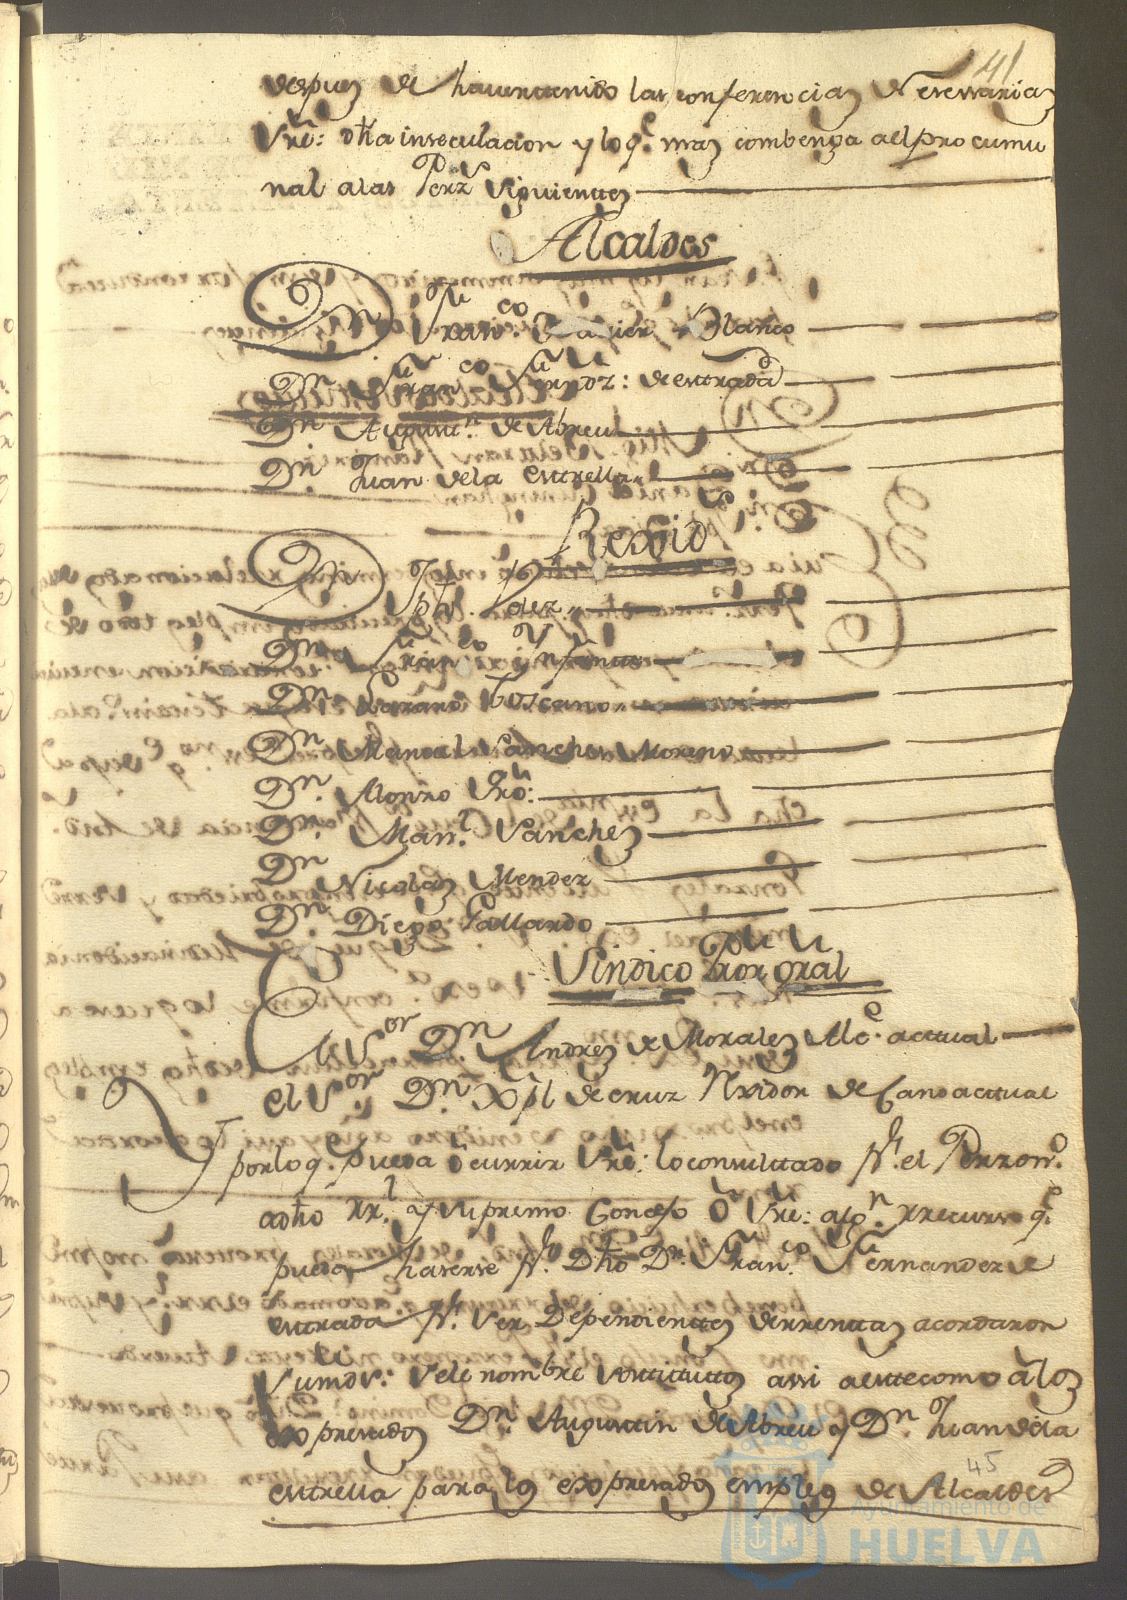 41
despues de haver tenido las conferencias Nesesarias
sre: dha inseculacion y lo q.e mas combenga a el pro cumu
nal a las Perz.s siguientes
Alcaldes
Dn Fran.co Xavier Blanco
Dn Fran.co Ferndz: de estrada
Dn Augustn. de Abreu
Dn. Juan de la estrella
Rexid.s
Dn Jph. Lopez
Dn Fran.co Ynfante
Dn Lazaro Toscano
Dn Manoel Sanches Moreno
Dn. Alonzo
Dn. Man.l Sanches
Dn Nicolas Mendez
Dn. Diego Gallardo
Sindico Pror gral
El S.or Dn Andres de Morales Alc.e actual
el S.or Dn. Xptl de cruz Rexidor de Cano actual
Y por lo q. pueda ocurrir sre: lo consultado p.r el Perzon.o
a dho Rl. y supremo Consejo o sre: algn. rrecurso q.e
pueda haserse p.r Dho Dn. Fran.co Fernandez de
estrada p.r ser Dependientes de rrentas acordaron
sumds.: se le nombre sostitutos assi a este como a los
expresados Dn. Augustin de Abreu y Dn. Juan de la
estrella para los expresados empleos de Alcaldes
45
Ayuntamiento de
HUELVA